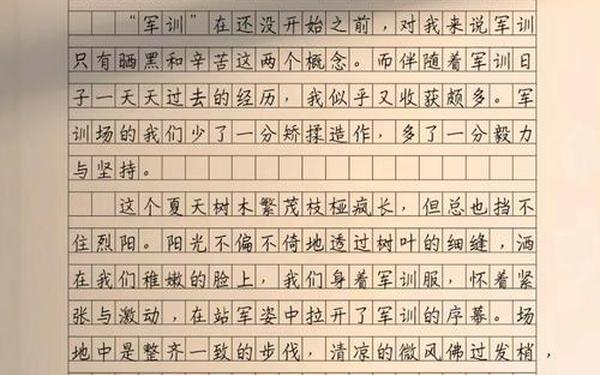 “军训”在还没开始之前，对我来说军训
只有晒黑和辛苦这两个概念。而伴随着军训日
子一天天过去的经历，我似乎又收获颇多。军
训场的我们少了一分矫揉造作，多了一分毅力
与坚持。
这个夏天树木繁茂枝桠疯长，但总也挡不
住烈阳。阳光不偏不倚地透过树叶的细缝，洒
在我们稚嫩的脸上，我们身着军训服，怀着紧
张与激动，在站军姿中拉开了军训的序幕。场
地中是整齐一致的步伐，清凉的微风佛过发梢，